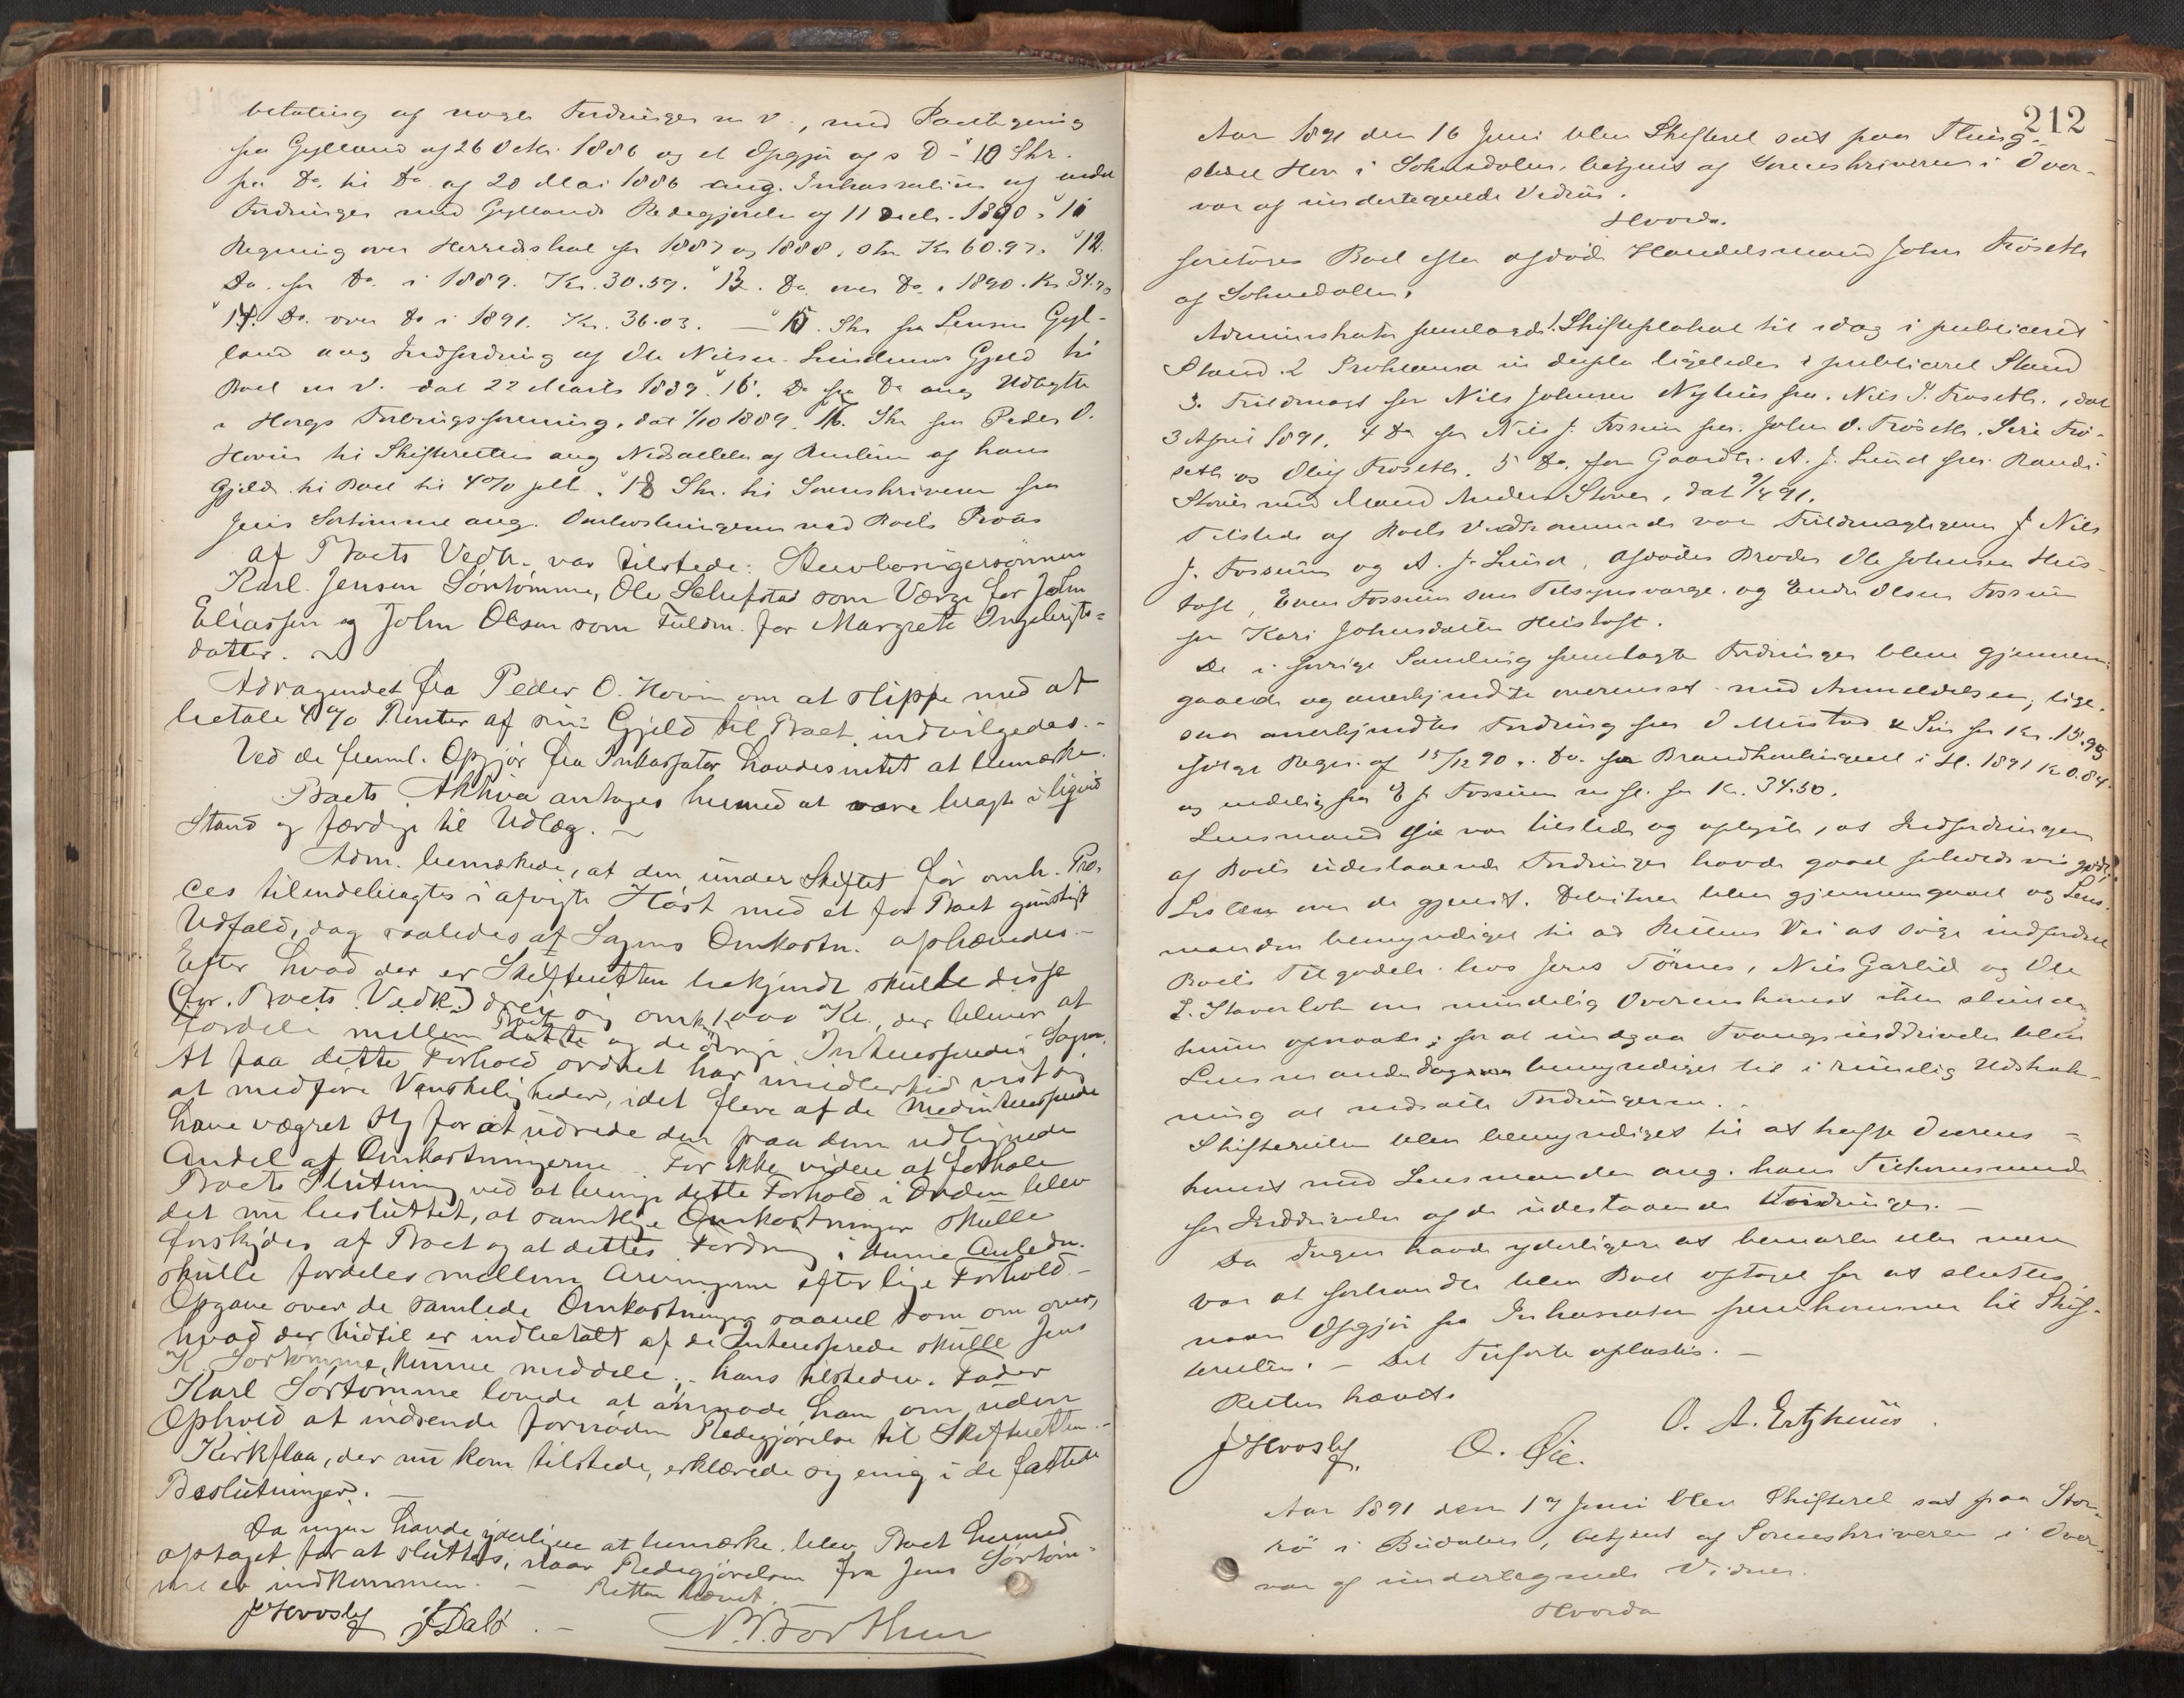 betaling af nogle Fordringer m v., med Paategning
fra Gylland af 26 Octbr. 1886 og et Opgjør af s D - 10 Skr.
fra Do. til Do. af 20 Mai 1886 ang. Inkassation af
Fordringer med Gyllands Redegjørelse af 11 Decb. 1890. 11
Regning over Herredskat for 1887 og 1888, stor Kr 60.97. 12.
Do. for Do. i 1889. Kr. 30.59. 13. Do. over Do. i 1890. Kr 34.
14. Do. over Do i 1891. Kr. 36.03. — 15. Skr fra Lensm Gyl-
land ang Indfordring af Ole Nilsen Gjeld til
Boet m v. dat 22 Marts 1889. 16. Do fra Do ang Udlagte
i Horgs Forbrugsforening, dat 1/10 1889. Skr fra Peder O.
Hovin til Skifteretten ang Nedsættelse af Renten af hans
Gjeld til Boet til 4% pCt. 18 Skr. til Sorenskriveren fra
Jens Sørtømme ang. Omkostningerne ved Boets Proces
Af Boets Vedk. var tilstede: Selvbrugersønnen
Karl Jensen Sørtømme, Ole Schefstad som Værge for John
Eliassen og John Olsen som Fuldm. for Margrete Ingebrigts-
datter.
Adragendet fra Peder O. Hovin om at slippe med at
betale 4% Renter af sin Gjeld til Boet, indvilgedes. -
Ved de fremml. Opgjør fra Inkassator havdes intet at bemærke.
Boets Aktiva antages hermed at være bragt i liqvid
Stand og færdige til Udlæg.
Adm. bemærkede, at den under Skiftet før omh. Pro-
ces tilendebragtes i afvigte Høst med et for Boet gunstigt
Udfald, dog saaledes at Sagens Omkostn. ophævedes. -
Efter hvad der er Skifteretten bekjendt skulle disse
(for Boets Vedk.) dreie sig omkr. 1000 Kr., der bliver at
fordele mellem Boet og de øvrige Interesserede i Sagen.
At faa dette Forhold ordnet har imidlertid vist sig
at medføre Vanskeligheder, idet flere af de Medinteresserede
have vægret sig for at udrede den paa dem udlignede
Andel af Omkostningerne. For ikke videre at forhale
Boets Slutning ved at bringe dette Forhold i Orden blev
det nu besluttet, at samtlige Omkostninger skulle
forskydes af Boet og at dettes Fordring i denne Anledn.
skulle fordeles mellem Arvingerne efter lige Forhold. -
Opgave over de samlede Omkostninger saavel som om over,
hvad der hidtil er indbetalt af de Interesserede skulle Jens
K. Sørtømme, kunne meddele; - hans tilstedev. Fader
Karl Sørtømme lovede at anmode ham om, uden
Ophold at indsende fornøden Redegjørelse til Skifteretten. -
Kirkflaa, der nu kom tilstede, erklærede sig enig i de fattede
Beslutninger.
Da ingen havde yderligere at bemærke, blev Boet hermed
optaget for at sluttes, naar Redegjørelsen fra Jens Sørtøm-
me er indkommen. - Retten hævet.
J Hvoslef
212
Aar 1891 den 16 Juni blev Skifteret sat paa Thing-
stedet Hov i Soknedalen, betjent af Sorenskriveren i Over-
vær af undertegnede Vidner.
Hvorda.
foretoges Boet efter afdøde Handelsmand John Frøseth
af Soknedalen.
Administrator fremlagde 1. Skifteplakat til idag i publiceret
Stand. 2 Proklama in duplo ligeledes i publiceret Stand
3. Fuldmagt for Nils Johnsen Nyhus fra Nils J. Frøseth, dat
3 April 1891. 4 Do for Nils J. Fossum fra John O. Frøseth, Siri Frø-
seth og Oliv Frøseth. 5 Do. for Gaardbr. A. J. Lund fra Randi
Støren med Mand Anders Støren, dat 9/4 91.
Tilstede af Boets Vedkommende var Fuldmægtigene Nils
J. Fossum og A. J. Lund, Afdødes Broder Ole Johnsen Hus-
toft, Even Fossum som Tilsynsværge og Endre Olsen Fossum
for Kari Johnsdatter Hustoft.
De i forrige Samling fremlagte Fordringer bleve gjennem-
gaaede og anerkjendte overensst. med Anmeldelsen, lige-
saa anerkjendtes Fordring fra O Mustad & Søn for Kr. 13.95
ifølge Regn. af 15/12 90. Do. for Brandkontingent i H. 1891 Kr 0.84.
og endelig fra E J. Fossum m fl. for Kr. 34.50.
Lensmand Øie var tilstede og oplyste, at Indfordringen
af Boets udestaaende Fordringer havde gaaet forholdsvis godt.
Listen over de gjenst. Debitorer blev gjennemgaaet og Lens-
manden bemyndiget til ad Rettens Vei at søge indfordret
Boets Tilgodeh. hos Jens Tørnes, Nils Garlid og Ole
J. Staverløk om mindelig Overenskomst ikke skulde
kunne opnaaes; for at undgaa Tvangsinddrivelse blev
Lensmanden dog bemyndiget til i rimelig Udstræk-
ning at nedsætte Fordringerne.
Skifteretten blev bemyndiget til at træffe Overens-
komst med Lensmanden ang. hans Tilkommende
for Inddrivelse af de udestaaende Fordringer. -
Da Ingen havde yderligere at bemærke eller mere
var at forhandle blev Boet optaget for at sluttes
naar Opgjør fra Inkassator fremkommer til Skif-
teretten. - Det Tilførte oplæstes. -
Retten hævet.
J Hvoslef O. Øie. O. A. Ertzhuus.
Aar 1891 den 17 Juni blev Skifteret sat paa Stor-
rø i Budalen, betjent af Sorenskriveren i Over-
vær af undertegnede Vidner.
Hvorda